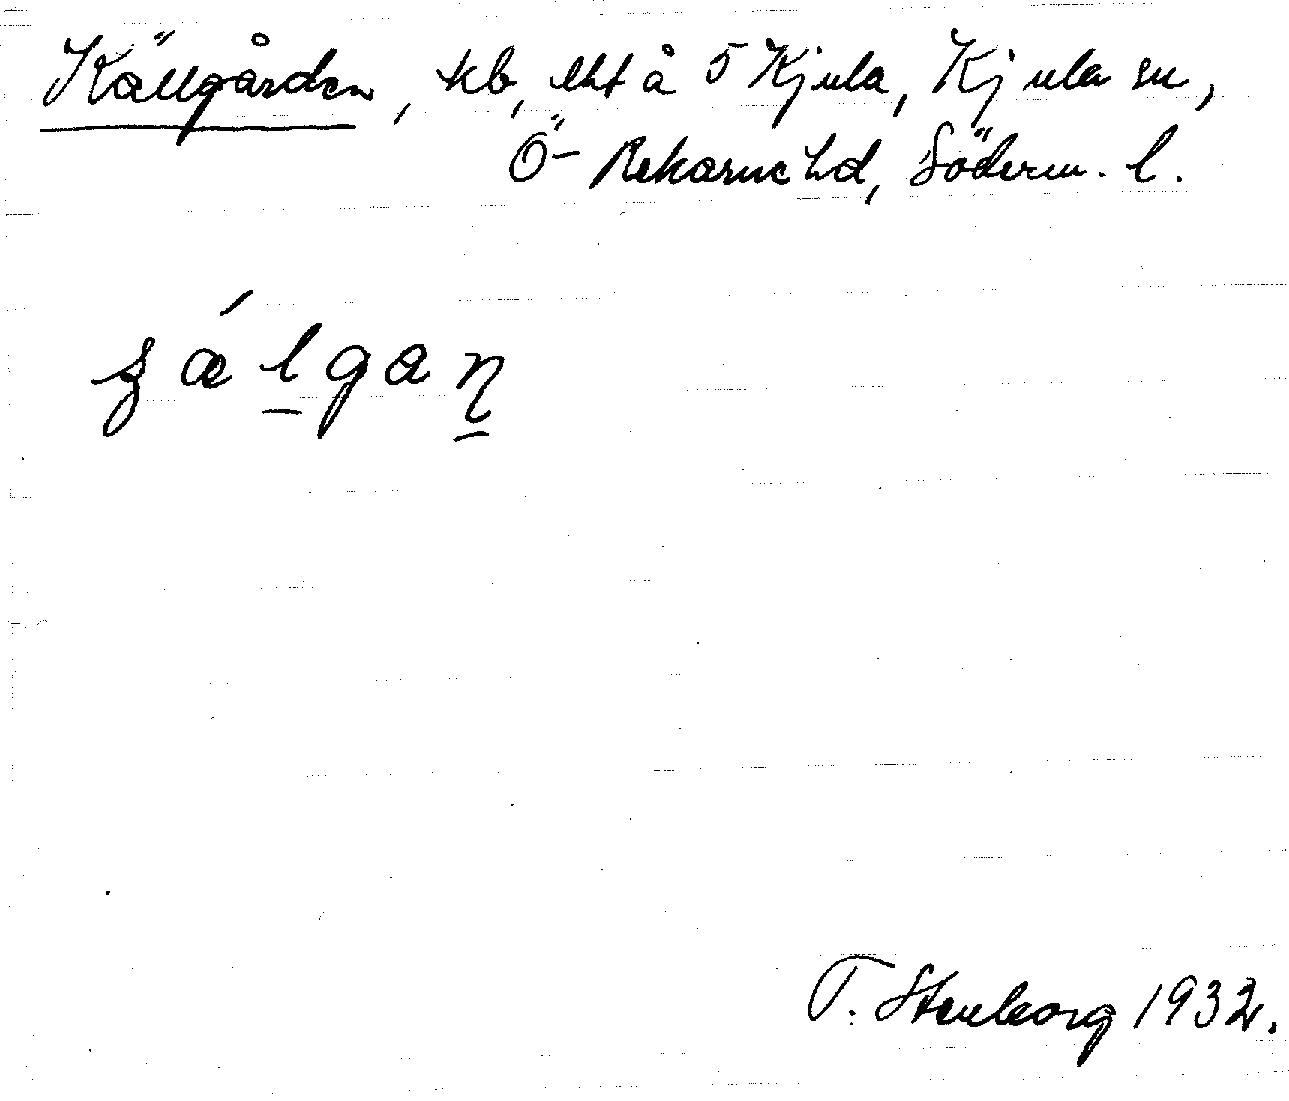 Källgården, kb, lht å 5 Kjula, Kjula sn,
Ö-Rekarne hd, Söderm. l.
ʂǽl̠gaṉ
T. Stenborg 1932.